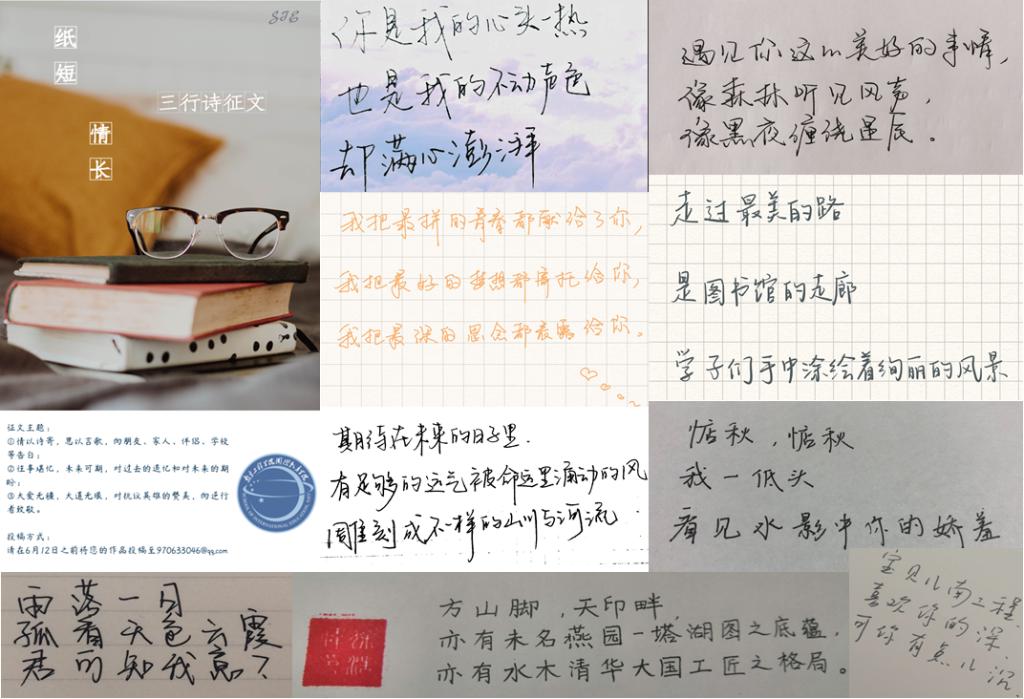 SIE
纸
短
情
长
三行诗征文
你是我的心头一热
也是我的不动声色
去却满心澎湃
遇见你这以美好的事情,
像森林听见风声,
像黑夜缠绕星辰。
我把最拼的青春都献给了你,
我把最好的梦想都寄托给你,
我把最深的思念都表露给你。
走过最美的路
是图书馆的走廊
学子们手中涂绘着绚丽的风景
征文主题:
①情以诗寄,思以言歌,向朋友、家人、伴侣、学校
等告白;
②往事堪忆,未来可期,对过去的追忆和对未来的期
盼;
③大爱无疆,大道无垠,对抗议英雄的赞美,向逆行
者致敬。
投稿方式:
请在6月12日之前将您的作品投稿至970633046@qq.com
期待在未来的日子里.
有足够的运气被命运里涌动的风
雕刻成不一样的山川与河流.
惦秋,惦秋
我一低头
看见水影中你的娇羞
雨落一月
孤看天色云霞
君可知我意了
方山脚,天印畔,
亦有未名燕园一塔湖图之底蕴,
亦有水木清华大国工匠之格局。
宝贝儿南工程
喜欢你的深,
可你有点儿沉